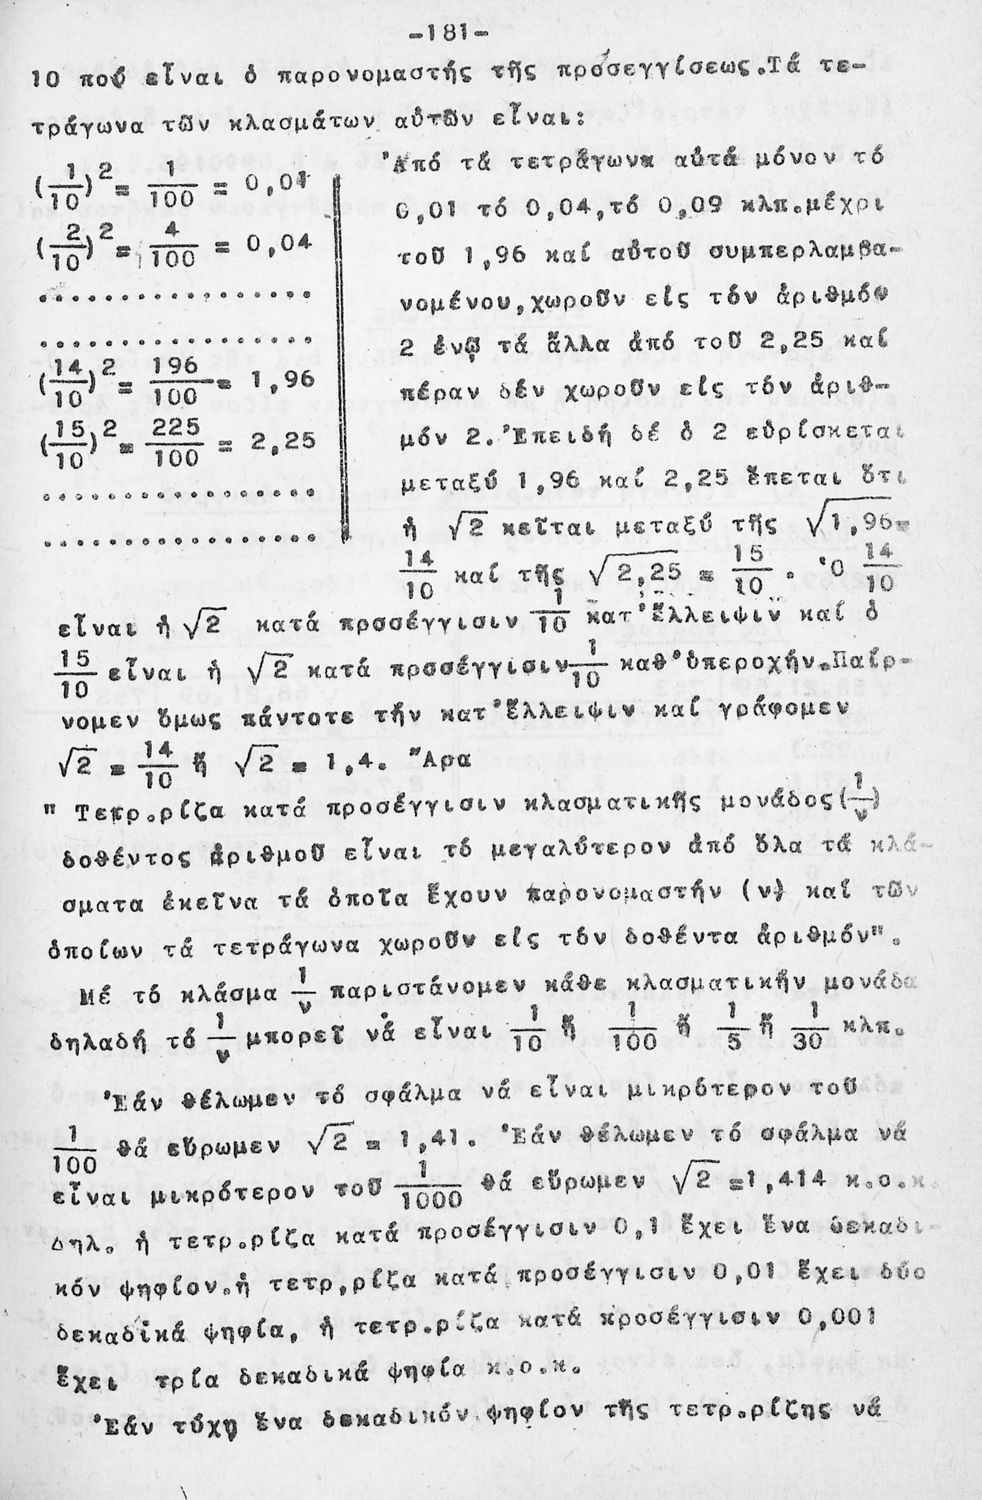 -181-
10 πού εἶναι ὁ παρονομαστής τῆς προσεγγίσεως.Τά τε-
τράγωνα τῶν κλασμάτων αὐτῶν εἶναι:
(1/10)² = 1/100 = 0,01
(2/10)² = 4/100 = 0,04
.................
.................
(14/10)² = 196/100 = 1,96
(15/10)² = 225/100 = 2,25
.................
.................
Ἀπό τά τετράγωνα αὐτά μόνον τό
0,01 τό 0,04,τό 0,09 κλπ.μέχρι
τοῦ 1,96 καί αὐτοῦ συμπερλαμβα-
νομένου,χωροῦν εἰς τόν ἀριθμόν
2 ἐνῷ τά ἄλλα ἀπό τοῦ 2,25 καί
πέραν δέν χωροῦν εἰς τόν ἀριθ-
μόν 2.Ἐπειδή δέ ὁ 2 εὑρίσκεται
μεταξύ 1,96 καί 2,25 ἕπεται ὅτι
ἡ √2 κεῖται μεταξύ τῆς √1,96=
14/10 καί τῆς √2,25 = 15/10 . Ὁ 14/10
εἶναι ἡ √2 κατά προσέγγισιν 1/10 κατ'ἔλλειψιν καί ὁ
15/10 εἶναι ἡ √2 κατά προσέγγισιν 1/10 καθ'ὑπεροχήν.Παίρ-
νομεν ὅμως πάντοτε τήν κατ'ἔλλειψιν καί γράφομεν
√2 = 14/10 ἤ √2 = 1,4. Ἄρα
" Τετρ.ρίζα κατά προσέγγισιν κλασματικῆς μονάδος(1/ν)
δοθέντος ἀριθμοῦ εἶναι τό μεγαλύτερον ἀπό ὅλα τά κλά-
σματα ἐκεῖνα τά ὁποῖα ἔχουν παρονομαστήν (ν) καί τῶν
ὁποίων τά τετράγωνα χωροῦν εἰς τόν δοθέντα ἀριθμόν".
Μέ τό κλάσμα 1/ν παριστάνομεν κάθε κλασματικήν μονάδα
δηλαδή τό 1/ν μπορεῖ νά εἶναι 1/10 ἤ 1/100 ἤ 1/5 ἤ 1/30 κλπ.
Ἐάν θέλωμεν τό σφάλμα νά εἶναι μικρότερον τοῦ
1/100 θά εὕρωμεν √2 = 1,41. Ἐάν θέλωμεν τό σφάλμα νά
εἶναι μικρότερον τοῦ 1/1000 θά εὕρωμεν √2 =1,414 κ.ο.κ.
Δηλ. ἡ τετρ.ρίζα κατά προσέγγισιν 0,1 ἔχει ἕνα δεκαδι-
κόν ψηφίον.ἡ τετρ,ρίζα κατά προσέγγισιν 0,01 ἔχει δύο
δεκαδικά ψηφία, ἡ τετρ.ρίζα κατά προσέγγισιν 0,001
ἔχει τρία δεκαδικά ψηφία κ.ο.κ.
Ἐάν τύχῃ ἕνα δεκαδικόν ψηφίον τῆς τετρ.ρίζης νά